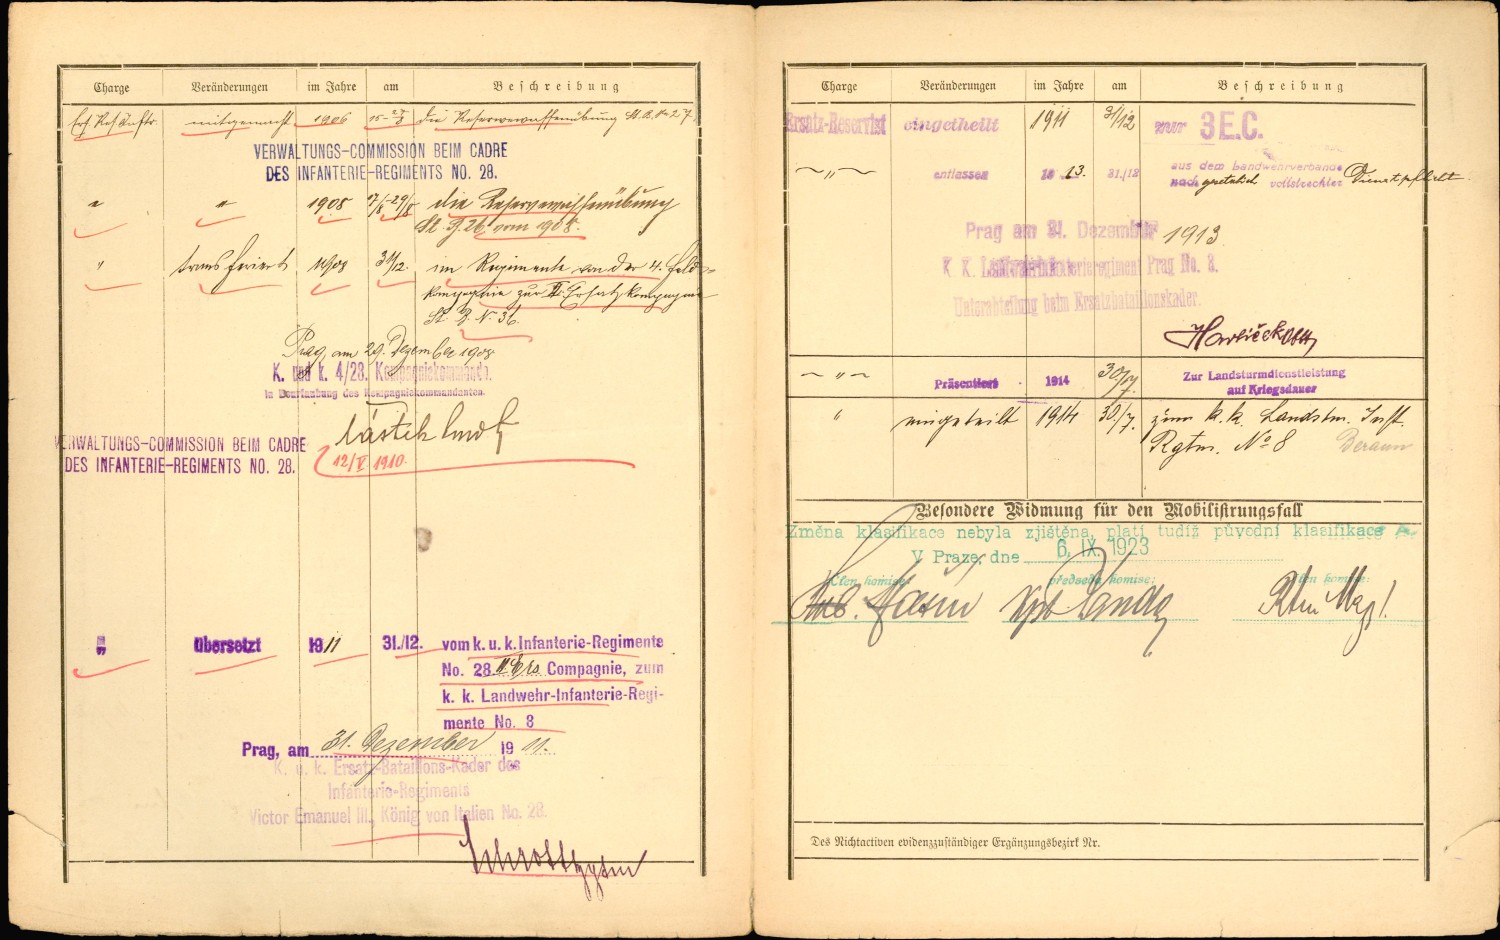 Charge Veränderungen im Jahre am Beschreibung
mitgemacht 1906 die Reservewaffenübung
VERWALTUNGS-COMMISSION BEIM CADRE
DES INFANTERIE-REGIMENTS NO. 28.
" " 1908 17/8-29/8 die Reservewaffenübung
26 vom 1908.
" transferiert 1908 31/12. im Regimente von der 4. Feld-
kompagnie zur Ersatzkompagnie
N. 36.
Prag, am 29. Dezember 1908
K. und k. 4/28. Kompagniekommando.
in Beurlaubung des Kompagniekommandanten.
VERWALTUNGS-COMMISSION BEIM CADRE
DES INFANTERIE-REGIMENTS NO. 28.
12/V. 1910.
übersetzt 1911 31./12. vom k. u. k. Infanterie-Regimente
No. 28 Compagnie, zum
k. k. Landwehr-Infanterie-Regi-
mente No. 8
Prag, am 31. Dezember 1911.
K. u. k. Ersatz-Bataillons-Kader des
Infanterie-Regiments
Victor Emanuel III., König von Italien No. 28.
Charge Veränderungen im Jahre am Beschreibung
Ersatz-Reservist eingetheilt 1911 31/12 zur 3E.C.
~ " ~ entlassen 1913. 31./12 aus dem Landwehrverbande
nach gesetzlich vollstreckter Dienstpflicht
Prag am 31. Dezember 1913
K. K. Landwehrinfanterieregiment Prag No. 8.
Unterabteilung beim Ersatzbataillonskader.
~ " ~ Präsentiert 1914 30/7. Zur Landsturmdienstleistung
auf Kriegsdauer
" eingeteilt 1914 30./7. zum k. k. Landstm. Inft.
Rgtm. No 8 Beraun
Besondere Widmung für den Mobilisirungsfall
Změna klasifikace nebyla zjištěna, platí tudíž původní klasifikace A
V Praze, dne 6. IX. 1923
Člen komise: předseda komise: člen komise:
Des Nichtactiven evidenzzuständiger Ergänzungsbezirk Nr.